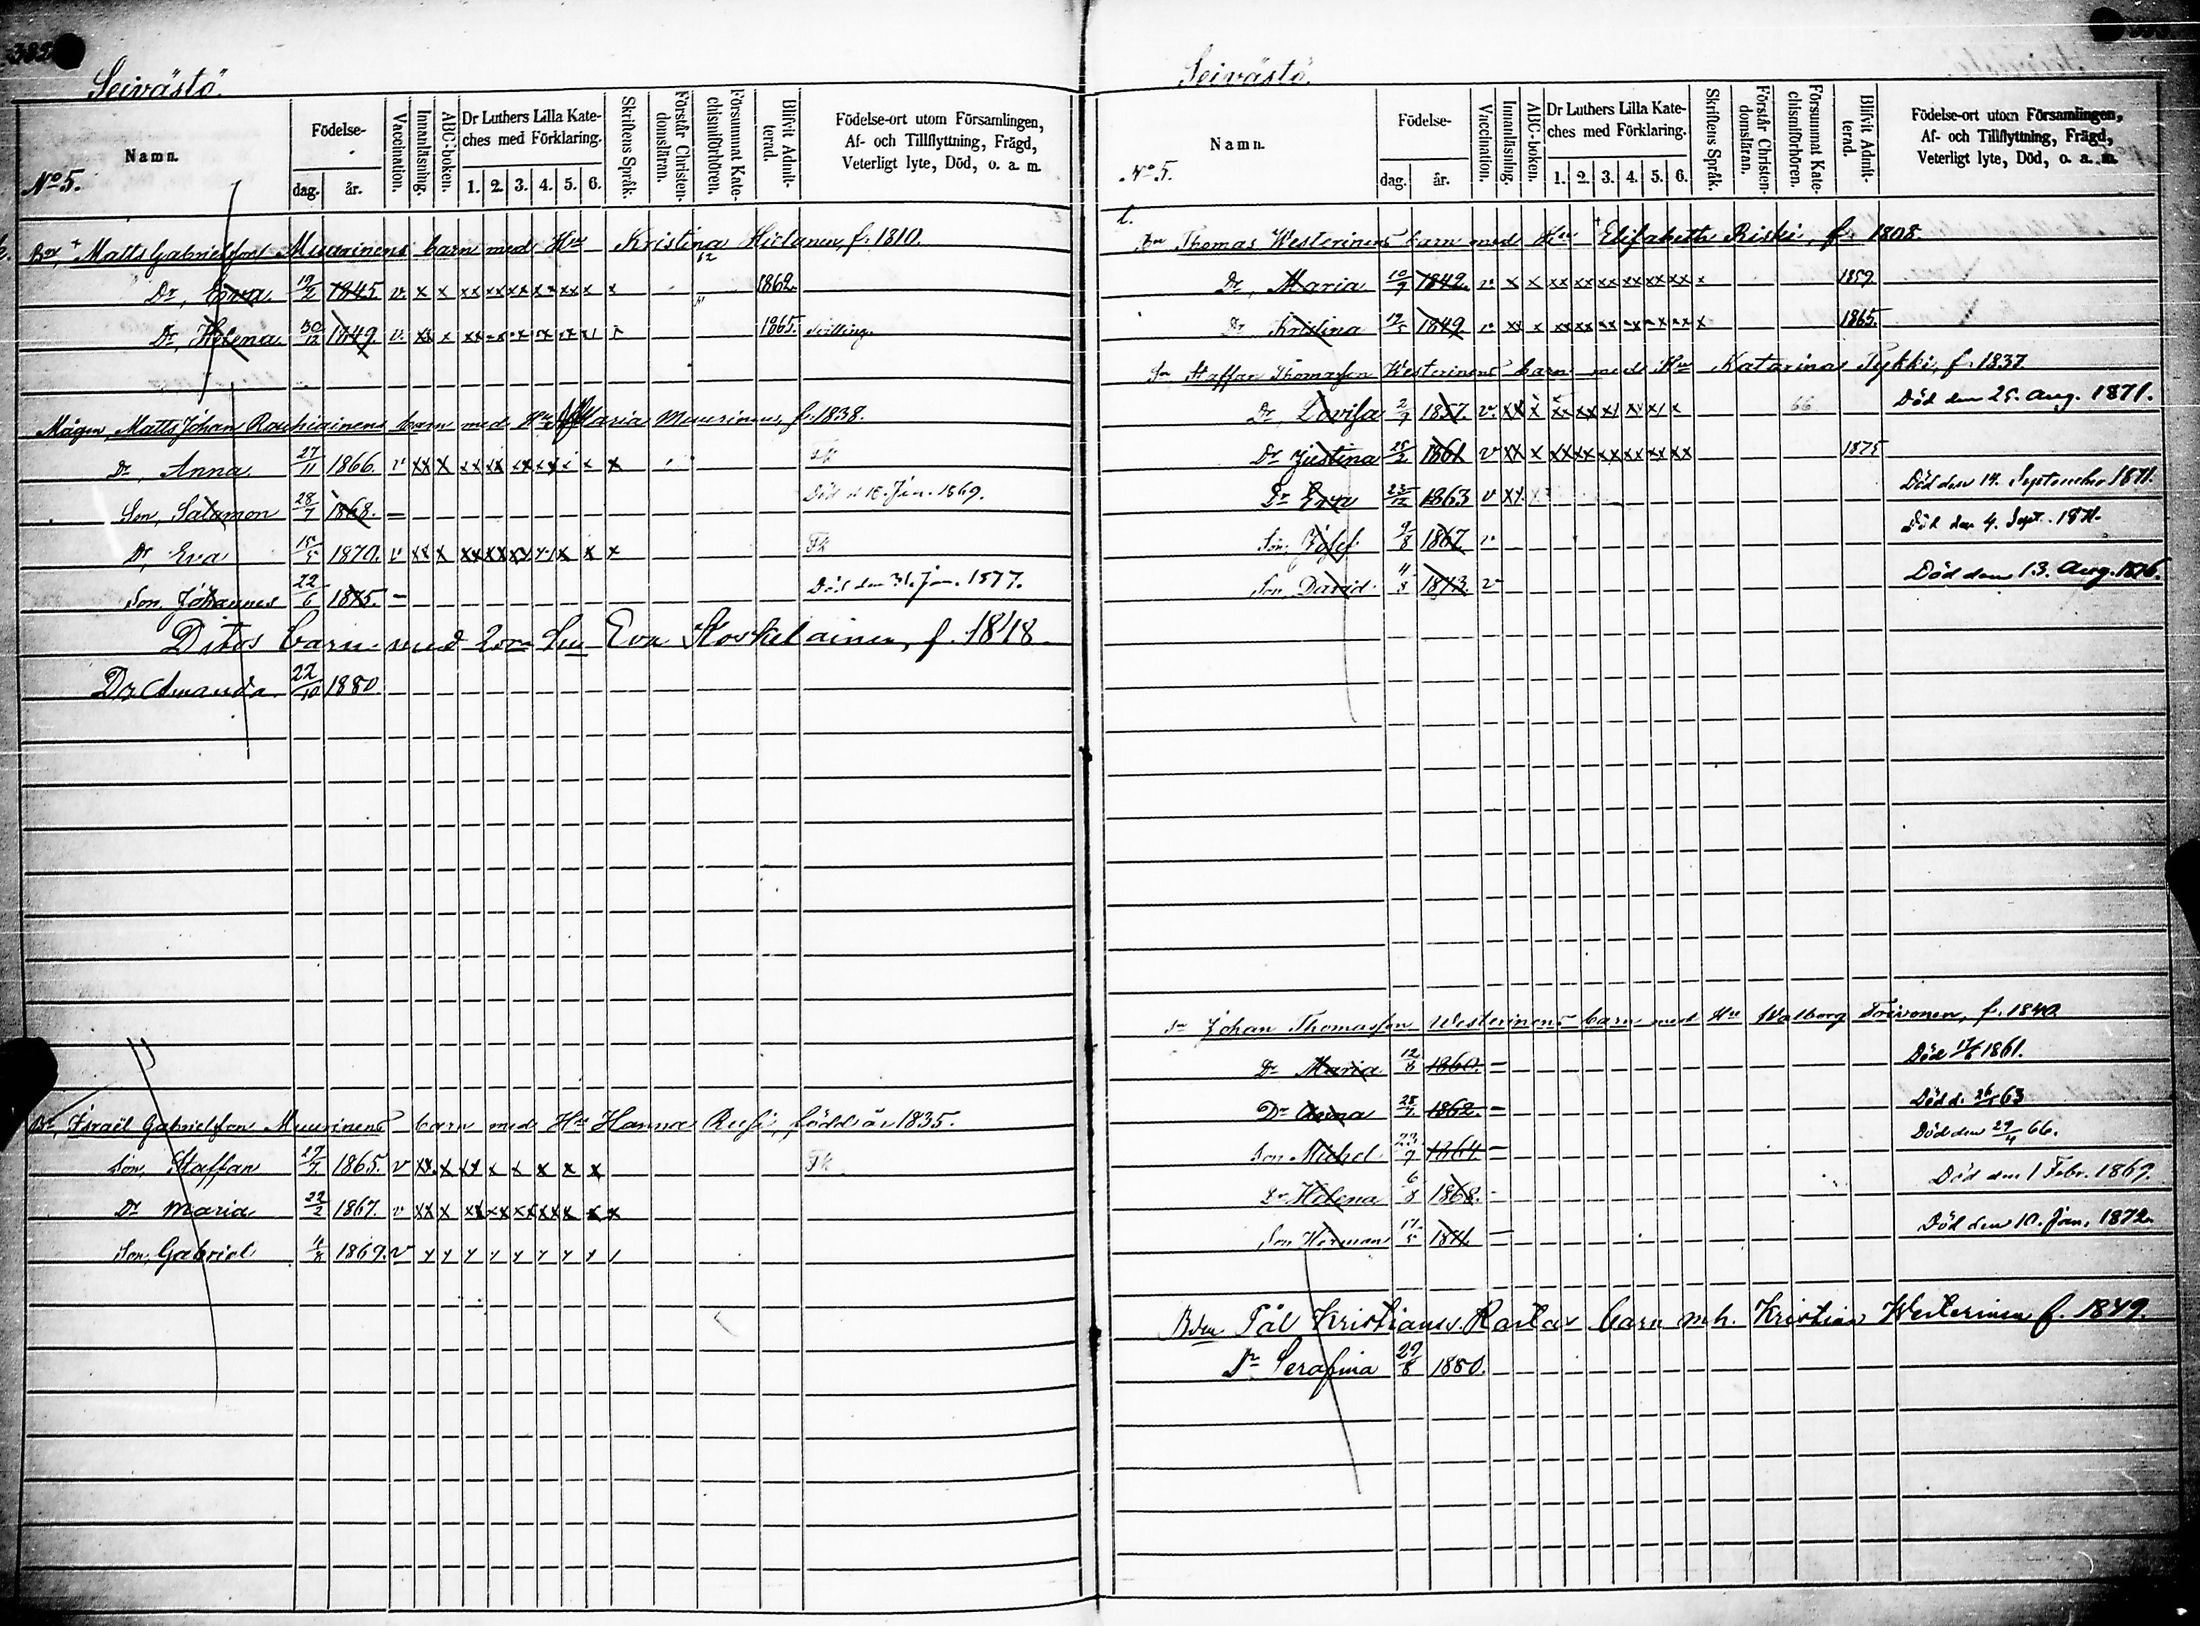 382
Seivästö.
Namn.
No 5.
Födelse-
dag.
år.
Vaccination.
Innanläsning.
ABC-boken.
Dr Luthers Lilla Kate-
ches med Förklaring.
1. 2. 3. 4. 5. 6.
Skriftens Språk.
Förstår Christen-
domsläran.
Försummat Kate-
chismiförhören.
Blifvit Admit-
terad.
Födelse-ort utom Församlingen,
Af- och Tillflyttning, Frägd,
Veterligt lyte, Död, o. a. m.
Matts Gabrielsson Muurinens barn med Hu Kristina f. 1810.
Dr, Eva 19/2 1845. v. x x xx xx xx xx xx x x 1862.
Dr, Helena 30/12 1849. v. xx x 1865.
Mågen, Matts Johan barn med Hu Maria Muurinen, f. 1838.
Dr, Anna 27/11 1866. v xx x xx xx xx xx x x x
Son, Salomon 28/7 1868. – Död d. 18. Jan. 1869.
Dr, Eva 15/5 1870. v xx x xx xx xx x x x
Son, Johannes 22/6 1875. – Död den 31. Jan. 1877.
Ditos barn med 2dra Hu Eva f. 1848
Dr Amanda 22/10 1880
Br, Israël Gabrielsson Muurinens barn med Hu Hanna Rusi, född år 1835.
Son, Staffan 27/7 1865. v xx x xx x x x x x
Dr Maria 22/2 1867. v xx x xx xx xx xx x x x
Son, Gabriel 4/8 1869. v
Seivästö.
Namn.
No 5.
Födelse-
dag.
år.
Vaccination.
Innanläsning.
ABC-boken.
Dr Luthers Lilla Kate-
ches med Förklaring.
1. 2. 3. 4. 5. 6.
Skriftens Språk.
Förstår Christen-
domsläran.
Försummat Kate-
chismiförhören.
Blifvit Admit-
terad.
Födelse-ort utom Församlingen,
Af- och Tillflyttning, Frägd,
Veterligt lyte, Död, o. a. m.
Thomas Westerinens barn med Hu Elisabeth Riski, f. 1808.
Dr, Maria 10/9 1842. v x x xx xx xx xx xx xx x 1859.
Dr Kristina 1849. v xx x xx xx xx 1865.
Sn Staffan Thomasson Westerinens barn med Hu Katarina Pykki, f. 1837.
Dr, Lovisa 2/9 1857. v. xx x xx xx xx xx x x 66 Död den 25. Aug. 1871.
Dr Justina 25/2 1861 v xx x xx xx xx xx xx xx 1875
Dr Eva 23/12 1863 v xx Död den 14. September 1871.
Son, Josef 9/8 1867 v Död den 4. Sept. 1871.
Son, David 4/8 1873. v Död den 13. Aug. 1876.
Sn Johan Thomasson Westerinens barn med Hu Walborg Toivonen, f. 1840.
Dr Maria 12/8 1860. – Död 17/6 1861.
Dr Anna 28/2 1862. – Död d. 63
Son Michel 23/9 1864 – Död den 29/4 66.
Dr Helena 6/8 1868. – Död den 1 Febr. 1869.
Son Herman 17/5 1871 – Död den 10. Jan. 1872.
Pål Kristians. Rastas barn m. h. Kristina Westerinen f. 1849.
Dr Serafina 29/8 1880.